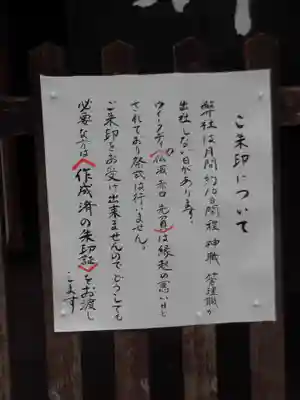 ご朱印について
弊社は月間約10日間程 神職 管理職が
出社しない日があります。
ウィークデイ（仏滅 赤口 先負）は縁起の悪い日と
されており祭式は行いません。
ご朱印をお受け出来ませんのでどうしても
必要な方は《作成済の朱印証》をお渡し
こます